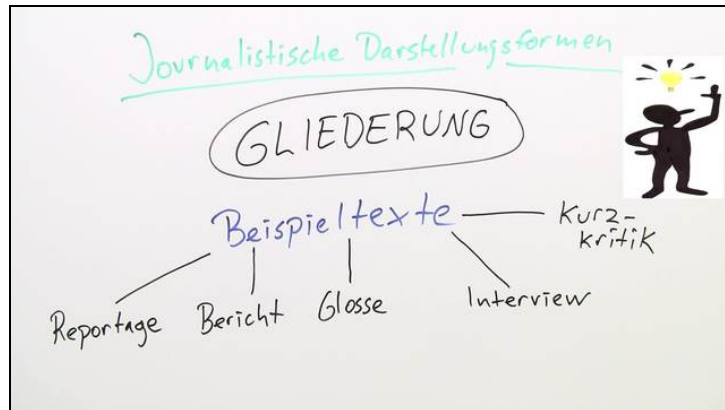 Journalistische Darstellungsformen
GLIEDERUNG
Beispieltexte
Kurz-
kritik
Reportage
Bericht
Glosse
Interview